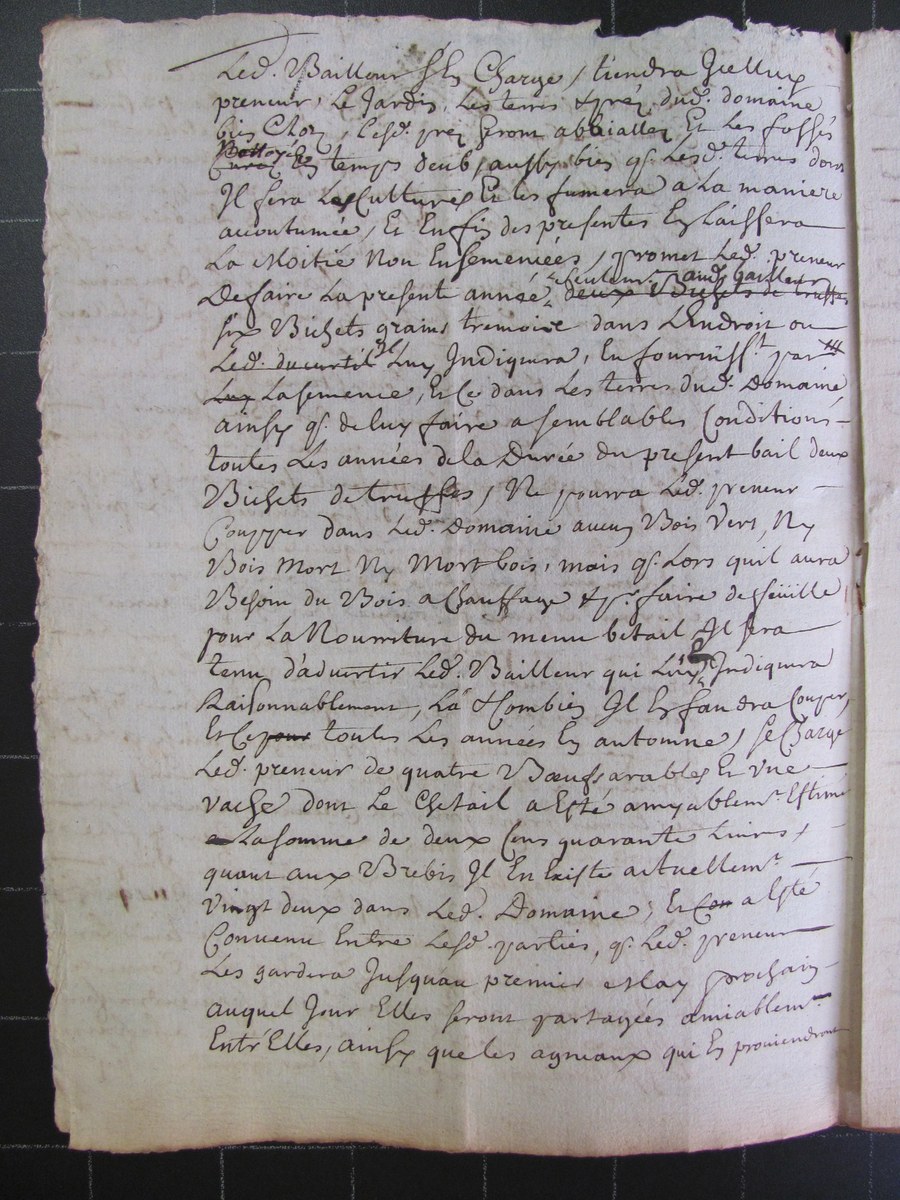 Led. Bailleur s'en Charge, tiendra Jcelluy
preneur, Le Jardin, Les terres & préz dud. domaine
bien Clos, lesd. préz seront abbiallez Et Les fossés
Nottoyés
Curéz En temps deub, aussy bien q. Lesd. terres dont
Jl fera Les Cultures Et les fumera a La maniere
acoutumée, Et Enfin des presentes En Laissera
La Moitié Non Ensemencées, promet Led. preneur
seulemt. aud. bailleur
De faire La presente année, deux Bichets de truffes
six Bichets grains tremoire dans L'Endroit ou
Led. ducurtil Luy Jndiquera, En fournisst. par
Luy La semence, Et Ce dans Les terres dud. Domaine
ainsy q. de luy faire a semblables Conditions
toutes Les années de la Durée du present bail deux
Bichets de truffes, Ne pourra Led. preneur
Coupper dans Led. Domaine aucun Bois Vert, Ny
Bois Mort Ny Mort bois, mais q. Lors quil aura
Besoin du Bois a Chauffage & pr. faire de feüille
pour La Nourriture du menu betail Jl sera
tenu d'advertir Led. Bailleur qui Luy Jndiquera
Raisonnablement, La & Combien Jl En faudra Couper,
Et Ce pour toutes Les années En automne, se Charge
Led. preneur de quatre Bœufs arables Et Vne
vache dont Le Chetail a Esté amyablemt. Estimé
a La somme de deux Cens quarante Livres,
quant aux Brebis Jl En Existe actuellemt.
Vingt deux dans Led. Domaine, Et Con a Esté
Convenu Entre Lesd. parties, q. Led. preneur
Les gardera Jusquau premier May prochain
auquel Jour Elles seront partagées amiablemt.
Entr'Elles, ainsy que les agneaux qui En proviendront